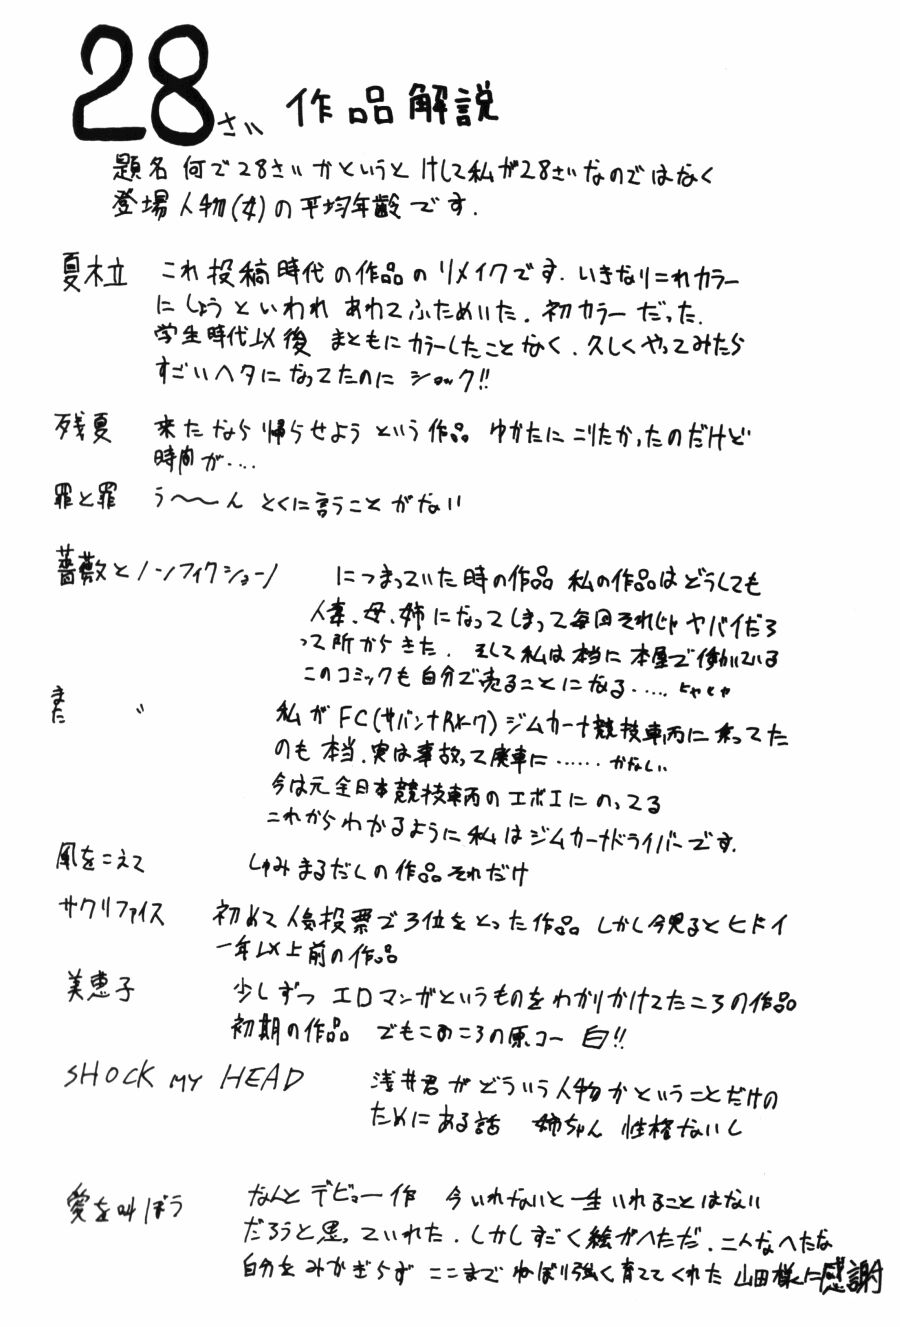 28さい 作品解説
題名 何で28さいかというと けして私が28さいなのではなく
登場人物(女)の平均年齢です.
夏木立 これ投稿時代の作品のリメイクです. いきなりこれカラー
にしようといわれ あわてふためいた. 初カラーだった.
学生時代以後 まともにカラーしたことなく. 久しくやってみたら
すごいヘタになってたのに ショック!!
残夏 来たなら帰らせようという作品 ゆかたにこりたかったのだけど
時間が‥‥
罪と罪 う〜〜ん とくに言うことがない
薔薇とノンフィクション につまっていた時の作品 私の作品はどうしても
人妻、母、姉になってしまって毎回それじゃヤバイだろ
って所からきた. そして私は本当に本屋で働いている
このコミックも自分で売ることになる‥‥‥ ヒャヒャ
また 〃 私がFC(サバンナRX-7)ジムカーナ競技車両に乗ってた
のも本当. 実は事故って廃車に‥‥‥ かなしい
今は元全日本競技車両のエボIにのってる
これからわかるように私はジムカーナドライバーです.
風をこえて しゅみまるだしの作品それだけ
サクリファイス 初めて人気投票で3位をとった作品 しかし今見るとヒドイ
一年以上前の作品
美恵子 少しずつ エロマンガというものをわかりかけてたころの作品
初期の作品 でもこのころの原コー 白!!
SHOCK MY HEAD 浅井君がどういう人物かということだけの
ためにある話 姉ちゃん 性格ないし
愛を叫ぼう なんとデビュー作 今いれないと一生いれることはない
だろうと思っていれた. しかしすごく絵がへただ. こんなへたな
自分をみかぎらず ここまでねばり強く育ててくれた 山田様に感謝